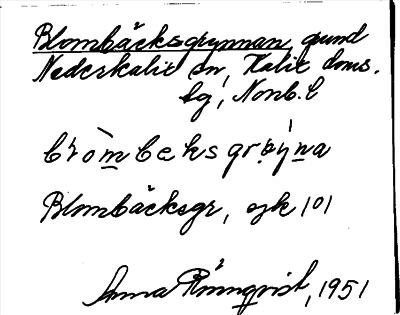 Blombäcksgrynnan, grund
Nederkalix sn, Kalix doms.
sg, Norrb. l
bròmbeksgrøyna
Blombäcksgr, ejk 101
Anna Rönnqvist, 1951